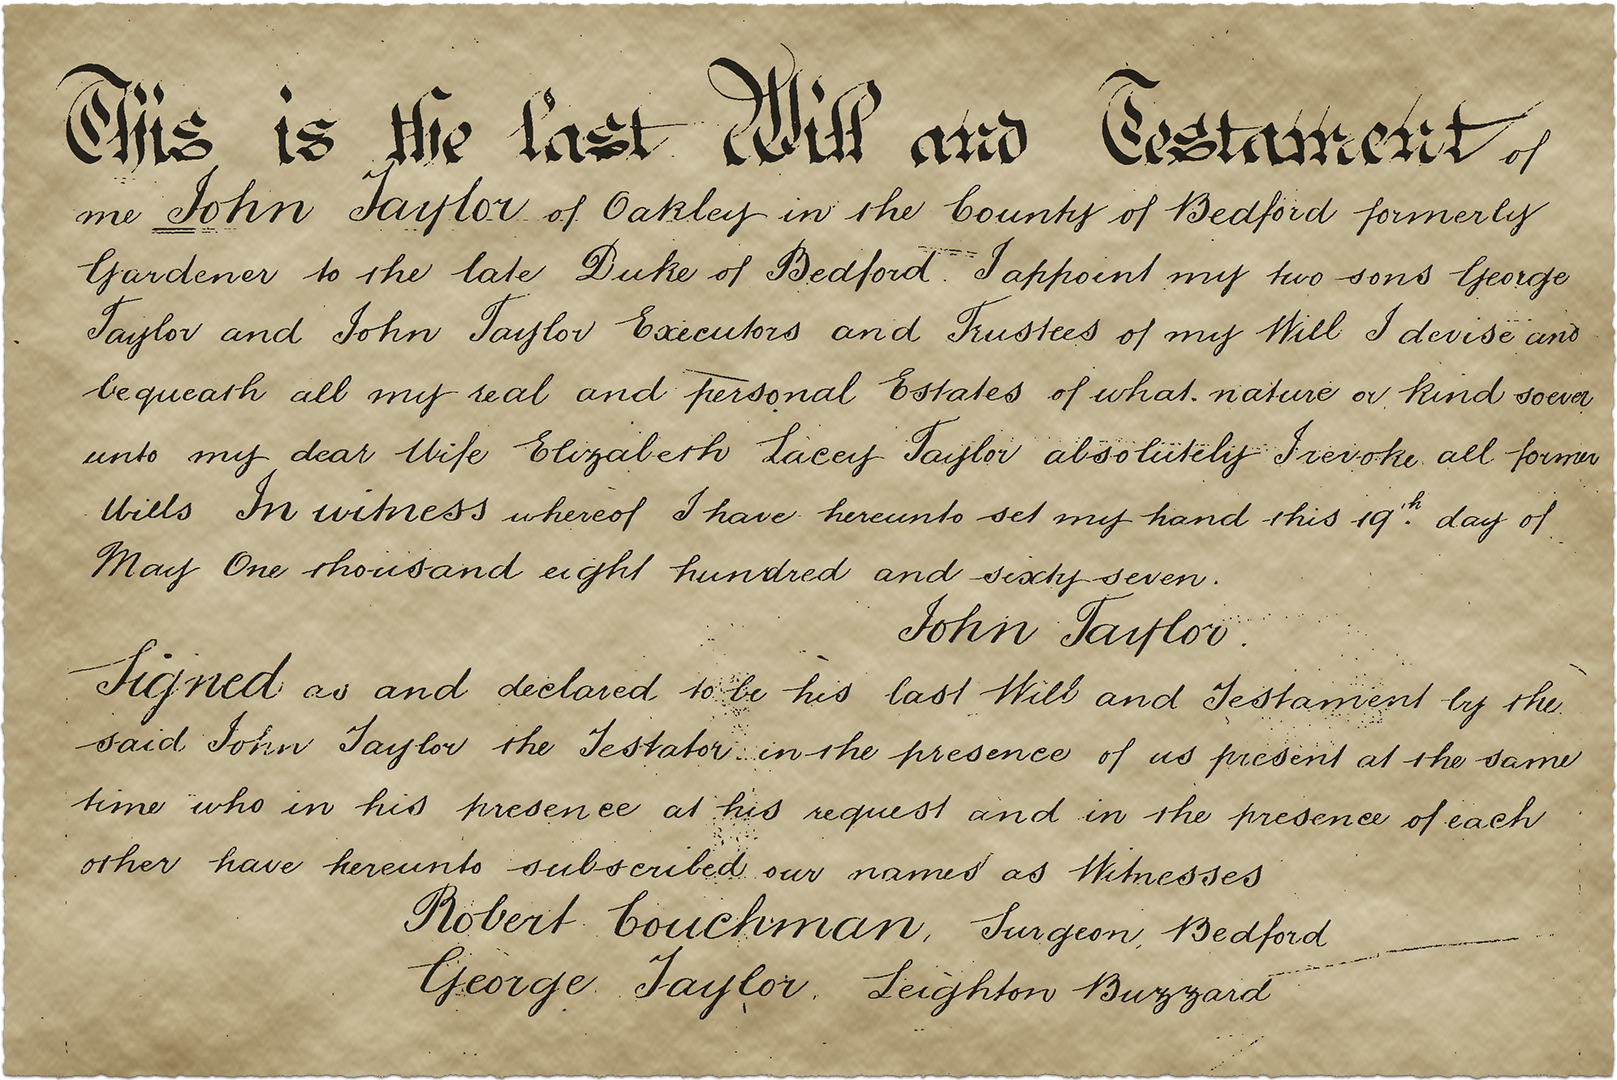 This is the last Will and Testament of
me John Taylor of Oakley in the County of Bedford formerly
Gardener to the late Duke of Bedford. I appoint my two sons George
Taylor and John Taylor Executors and Trustees of my Will I devise and
bequeath all my real and personal Estates of what. nature or kind soever
unto my dear Wife Elizabeth Lacey Taylor absolutely I revoke all former
Wills In witness whereof I have hereunto set my hand this 19th. day of
May One thousand eight hundred and sixty seven.
John Taylor.
Signed as and declared to be his last Will and Testament by the
said John Taylor the Testator in the presence of us present at the same
time who in his presence at his request and in the presence of each
other have hereunto subscribed our names as Witnesses
Robert Couchman, Surgeon, Bedford
George Taylor. Leighton Buzzard